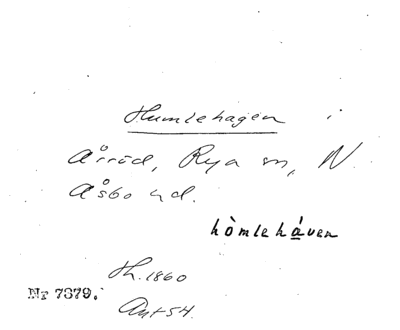 Humlehagen i
Årröd, Rya sn, N.
Åsbo hd.
hòmleháven
Th. 1860
Nr 7879.
Ant SH.